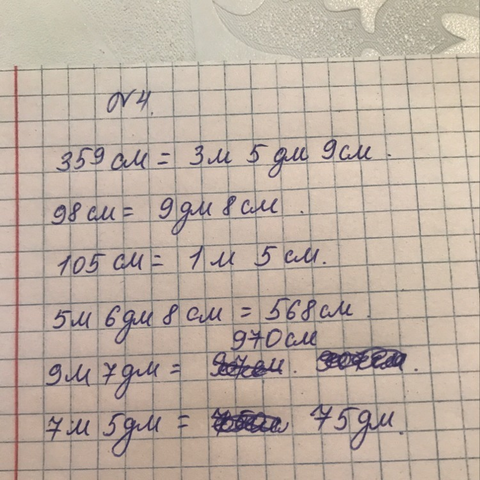 №4.
359 см = 3 м 5 дм 9 см.
98 см = 9 дм 8 см.
105 см = 1 м 5 см.
5 м 6 дм 8 см = 568 см.
970 см
9 м 7 дм = . .
7 м 5 дм = 75 дм.